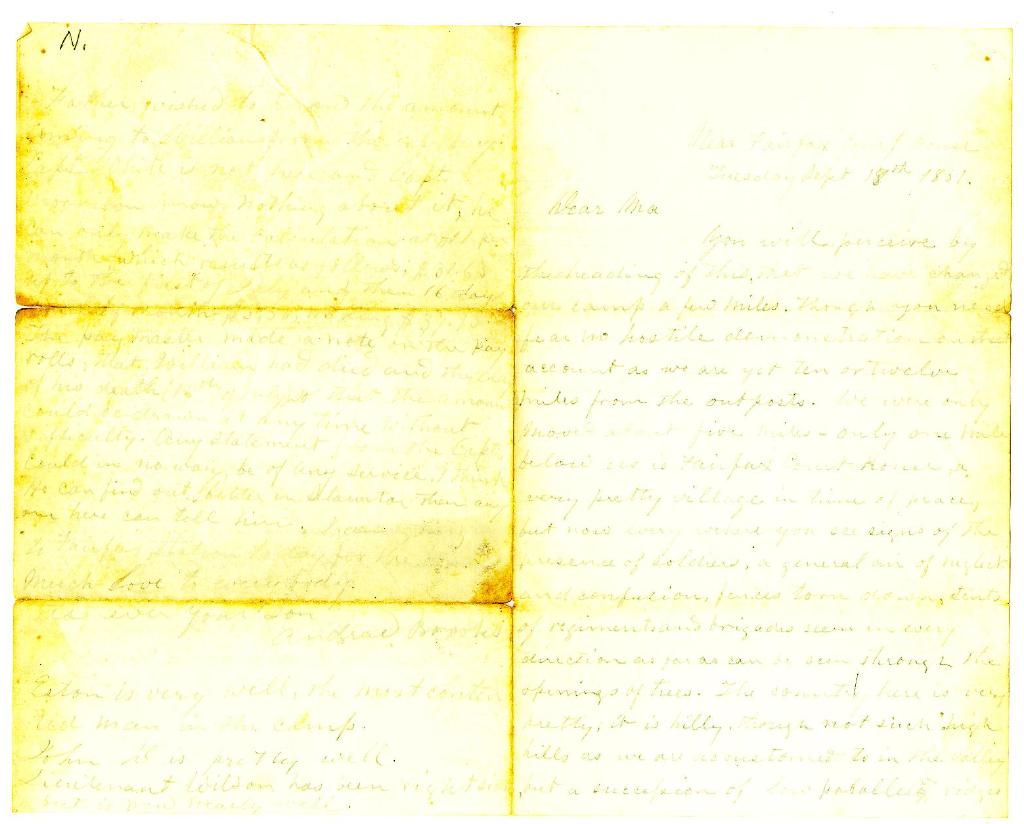 N.
Father wished to and the amount
coming to William from the
Capt. White is not here and Capt.
knows nothing about it, he
can only make the calculation at
month which results as follows.
up to the first of and then 16 days
The paymaster made a note on the pay
rolls, that William had died and the
of his death, that the amount
could be drawn at any time without
difficulty. Any statement from the Capt.
could in no way be of any service. I think
he can find out better in Staunton than any
one here can tell him.
to Fairfax Station to day for the
Much love to everybody.
As ever your son
Brooks
Eston is very well, the most conten
ted man in the camp.
John is pretty well.
Lieutenant Wilson has been right sick
but is now nearly well.
Near Fairfax Court House
Tuesday Sept 18th 1861.
Dear Ma
You will perceive by
the heading of this that we have changed
our camp a few miles. Though you need
fear no hostile demonstration on that
account as we are yet ten or twelve
miles from the outposts. We were only
moved about five miles - only one mile
below us is Fairfax Court House, a
very pretty village in time of peace,
but now every where you see signs of the
presence of soldiers, a general air of neglect
and confusion, fences torn down, tents
of regiments and brigades seen in every
direction as far as can be seen through the
openings of trees. The country here is very
pretty, it is hilly, though not such high
hills as we are accustomed to in the valley
but a succession of low parallel ridges